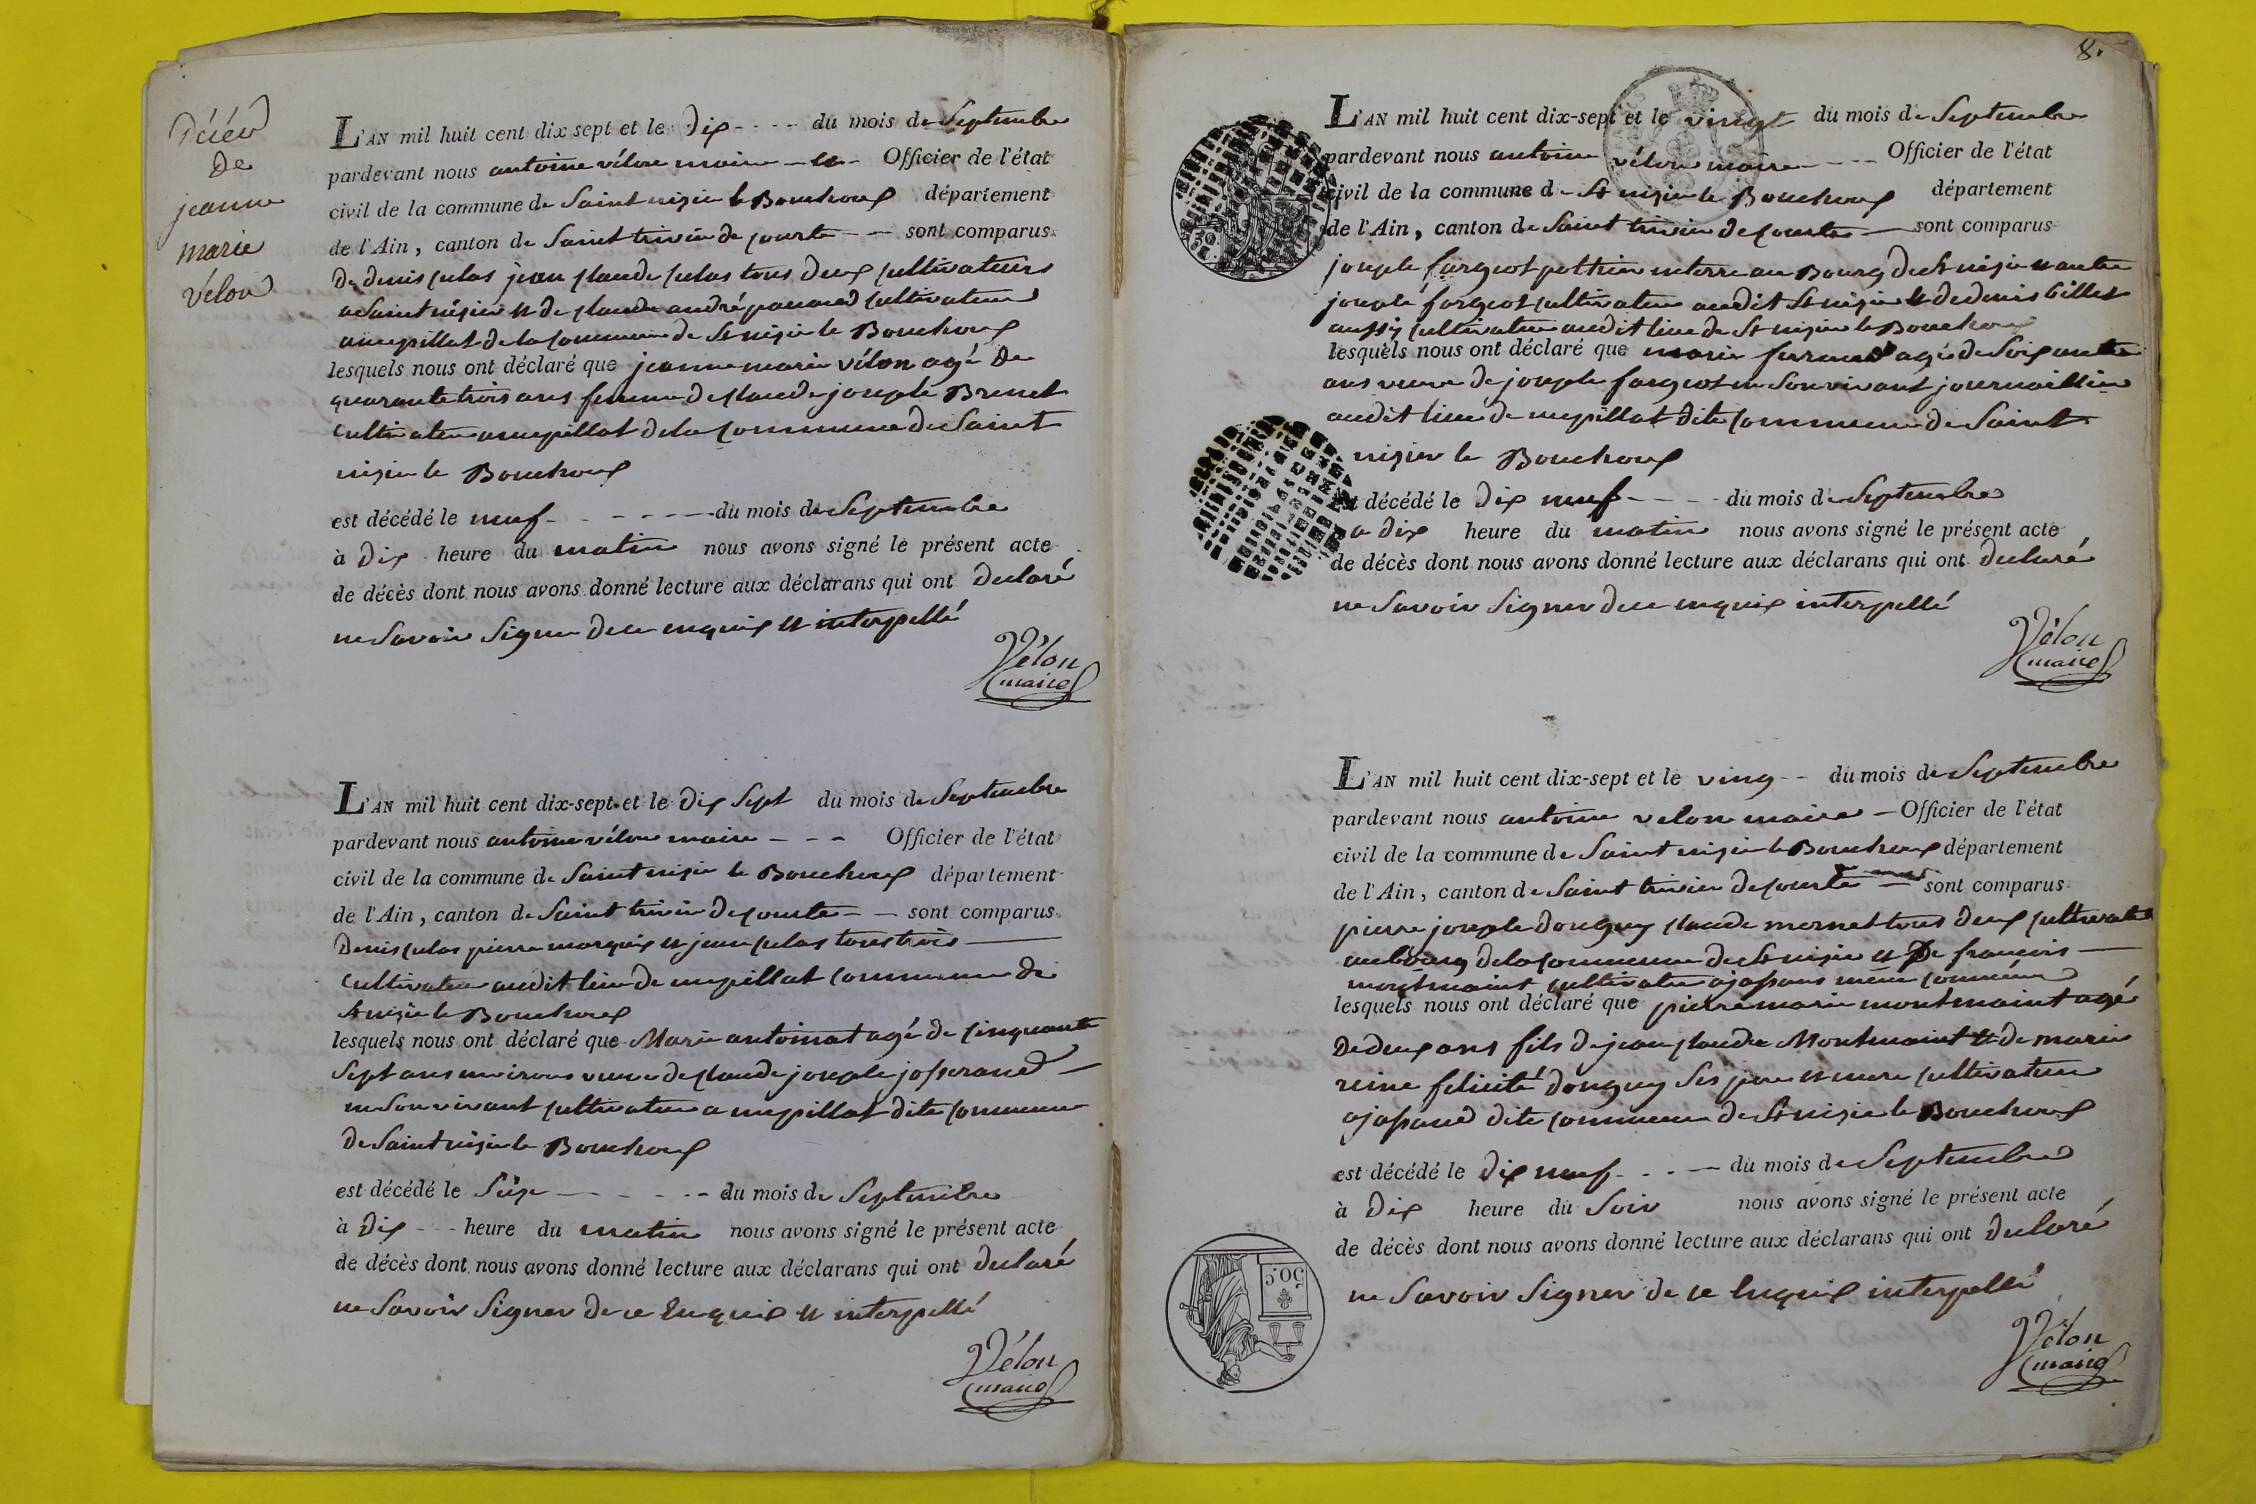 Décéd
de
jeanne
marie
vélon
L'AN mil huit cent dix sept et le dix - - - - du mois de Septembre
pardevant nous antoine vélon maire Officier de l'état
civil de la commune de Saint nizier le Bouchoux département
de l'Ain, canton de Saint trivier de courte - - sont comparus
De denis culas jean claude culas tous deux cultivateurs
a Saint nizier et de claude andré cultivateur
a mepillat de la commune de St nizier le Bouchoux
lesquels nous ont déclaré que jeanne marie vélon agé de
quarante trois ans femme de claude joseph Brunet
cultivateur a mepillat de la commune de Saint
nizier le Bouchoux
est décédé le neuf - - - - - - du mois de Septembre
à dix heure du matin nous avons signé le présent acte
de décès dont nous avons donné lecture aux déclarans qui ont declaré
ne Savoir Signer de ce enquis et interpellé
Vélon
maire
L'AN mil huit cent dix-sept et le dix Sept du mois de Septembre
pardevant nous antoine vélon maire - - - Officier de l'état
civil de la commune de Saint nizier le Bouchoux département
de l'Ain, canton de Saint trivier de courte - - sont comparus
Denis culas pierre marquis et jean culas tous trois
cultivateur audit lieu de mepillat commune de
St nizier le Bouchoux
lesquels nous ont déclaré que Marie antoinat agé de cinquante
Sept ans environs veuve de claude joseph josserand
en Son vivant cultivateur a mepillat dite commune
de Saint nizier le Bouchoux
est décédé le Sèze - - - - - du mois de Septembre
à dix - - - heure du matin nous avons signé le présent acte
de décès dont nous avons donné lecture aux déclarans qui ont declaré
ne Savoir Signer de ce Enquis et interpellé
Vélon
maire
8.
L'AN mil huit cent dix-sept et le vingt du mois de Septembre
pardevant nous antoine vélon maire - - - - Officier de l'état
civil de la commune de St nizier le Bouchoux département
de l'Ain, canton de Saint trivier de courte sont comparus
joseph fargeot en terre au Bourg de St nizier et autre
joseph fargeot cultivateur audit St nizier et de denis billet
aussy cultivateur audit lieu de St nizier le Bouchoux
lesquels nous ont déclaré que marie ferrand agé de Soixante
ans veuve de joseph fargeot en Son vivant journaillier
audit lieu de mepillat dite commune de Saint
nizier le Bouchoux
est décédé le dix neuf - - - - du mois de Septembre
a dix heure du matin nous avons signé le présent acte
de décès dont nous avons donné lecture aux déclarans qui ont declaré
ne Savoir Signer de ce enquis interpellé
Vélon
maire
L'AN mil huit cent dix-sept et le ving - - du mois de Septembre
pardevant nous antoine velon maire - Officier de l'état
civil de la commune de Saint nizier le Bouchoux département
de l'Ain, canton de Saint trivier de courte sont comparus
pierre joseph douguy claude mornet tous deux cultivateur
au bourg de la commune de St nizier et De francois
montmaint cultivateur a même commune
lesquels nous ont déclaré que pierre marie montmaint agé
De deux ans fils de jean claude Montmaint et de marie
reine felicité douguy Ses pere et mere cultivateur
a dite commune de St nizier le Bouchoux
est décédé le dix neuf - - - du mois de Septembre
à dix heure du Soir nous avons signé le présent acte
de décès dont nous avons donné lecture aux déclarans qui ont declaré
ne Savoir Signer de ce Enquis interpellé
50 C.
Vélon
maire